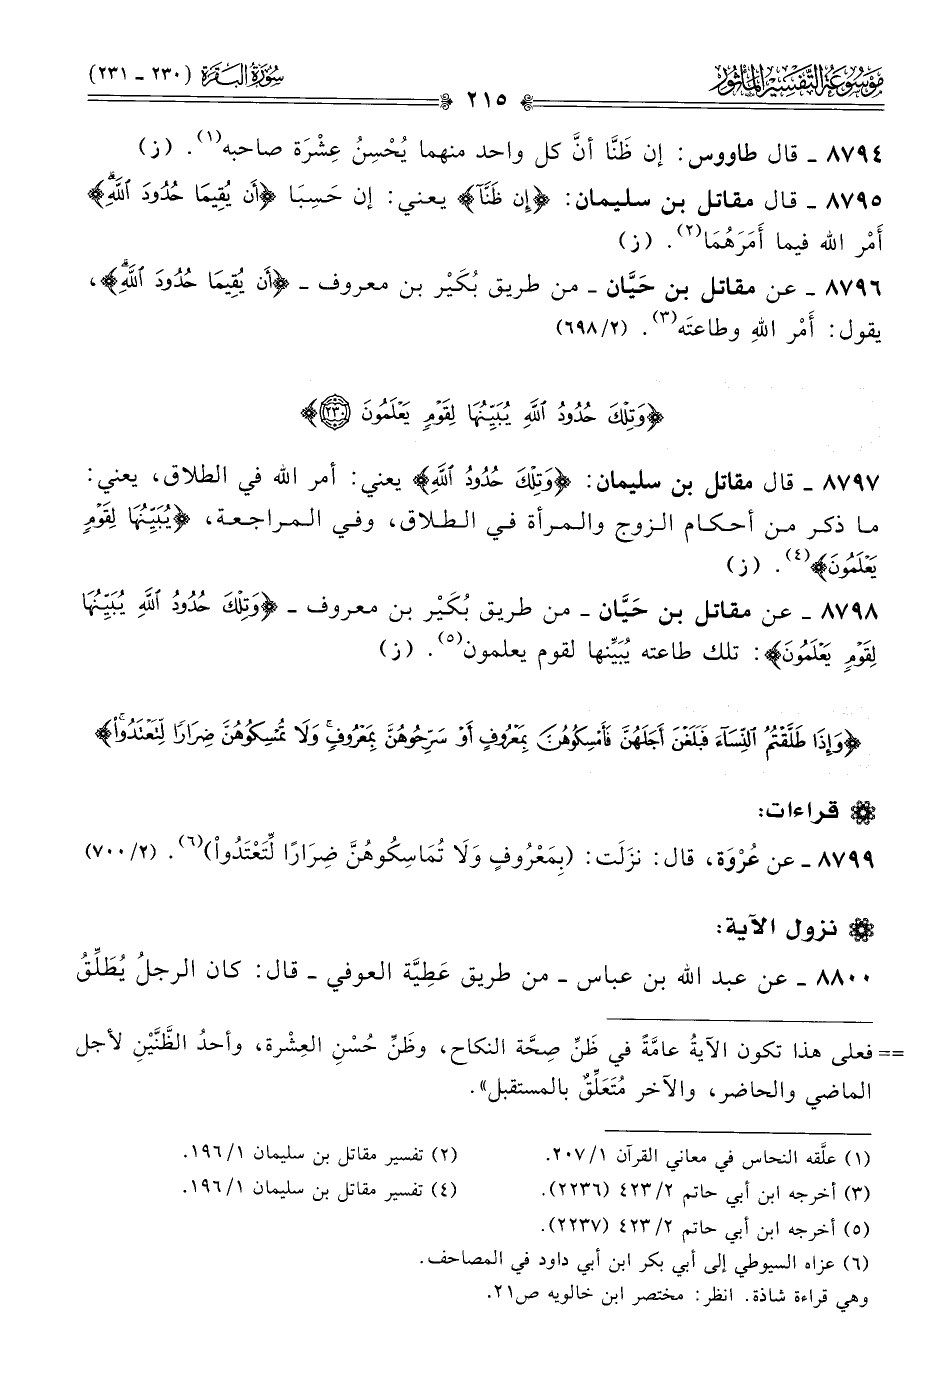 موسوعة التفسير المأثور
سورة البقرة (٢٣٠ - ٢٣١)
٢١٥
٨٧٩٤ - قال طاووس: إن ظَنَّا أنَّ كل واحد منهما يُحْسِنُ عِشْرَة صاحبه(١). (ز)
٨٧٩٥ - قال مقاتل بن سليمان: ﴿إِن ظَنَّآ﴾ يعني: إن حَسِبَا ﴿أَن يُقِيمَا حُدُودَ ٱللَّهِۗ﴾
أَمْر الله فيما أَمَرَهُمَا(٢). (ز)
٨٧٩٦ - عن مقاتل بن حَيَّان - من طريق بُكَيْر بن معروف - ﴿أَن يُقِيمَا حُدُودَ ٱللَّهِۗ﴾،
يقول: أَمْر اللهِ وطاعتَه(٣). (٦٩٨/٢)
﴿وَتِلْكَ حُدُودُ ٱللَّهِ يُبَيِّنُهَا لِقَوْمٍ يَعْلَمُونَ ٢٣٠﴾
٨٧٩٧ - قال مقاتل بن سليمان: ﴿وَتِلْكَ حُدُودُ ٱللَّهِ﴾ يعني: أمر الله في الطلاق، يعني:
ما ذكر من أحكام الزوج والمرأة في الطلاق، وفي المراجعة، ﴿يُبَيِّنُهَا لِقَوْمٍ
يَعْلَمُونَ﴾(٤). (ز)
٨٧٩٨ - عن مقاتل بن حَيَّان - من طريق بُكَيْر بن معروف - ﴿وَتِلْكَ حُدُودُ ٱللَّهِ يُبَيِّنُهَا
لِقَوْمٍ يَعْلَمُونَ﴾: تلك طاعته يُبَيِّنها لقوم يعلمون(٥). (ز)
﴿وَإِذَا طَلَّقْتُمُ ٱلنِّسَآءَ فَبَلَغْنَ أَجَلَهُنَّ فَأَمْسِكُوهُنَّ بِمَعْرُوفٍ أَوْ سَرِّحُوهُنَّ بِمَعْرُوفٍۚ وَلَا تُمْسِكُوهُنَّ ضِرَارًا لِّتَعْتَدُوا۟ۚ﴾
قراءات:
٨٧٩٩ - عن عُرْوَة، قال: نزَلَت: (بِمَعْرُوفٍ وَلَا تُمَاسِكُوهُنَّ ضِرَارًا لِّتَعْتَدُواْ)(٦). (٧٠٠/٢)
نزول الآية:
٨٨٠٠ - عن عبد الله بن عباس - من طريق عَطِيَّة العوفي - قال: كان الرجلُ يُطَلِّقُ
== فعلى هذا تكون الآيةُ عامَّةً في ظَنِّ صِحَّة النكاح، وظَنِّ حُسْنِ العِشْرة، وأحدُ الظَّنَّيْنِ لأجل
الماضي والحاضر، والآخر مُتَعَلِّقٌ بالمستقبل».
(١) علَّقه النحاس في معاني القرآن ٢٠٧/١.
(٢) تفسير مقاتل بن سليمان ١٩٦/١.
(٣) أخرجه ابن أبي حاتم ٤٢٣/٢ (٢٢٣٦).
(٤) تفسير مقاتل بن سليمان ١٩٦/١.
(٥) أخرجه ابن أبي حاتم ٤٢٣/٢ (٢٢٣٧).
(٦) عزاه السيوطي إلى أبي بكر ابن أبي داود في المصاحف.
وهي قراءة شاذة. انظر: مختصر ابن خالويه ص٢١.